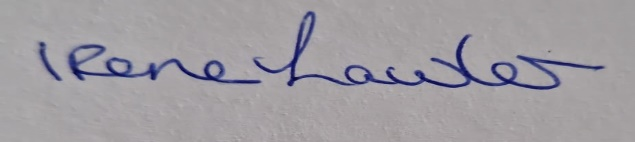 Irene Lawler